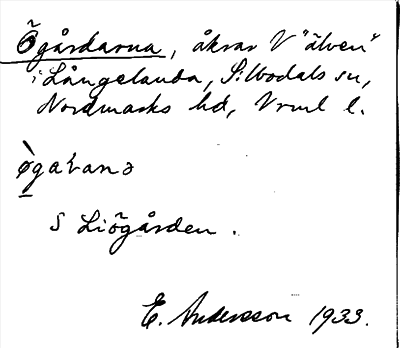 Ögårdarna, åkrar V "älven"
i Långelanda, Sillbodals sn,
Nordmarks hd, Vrml l.
ø̀gaꞩanə
S Liögården.
E. Andersson 1933.